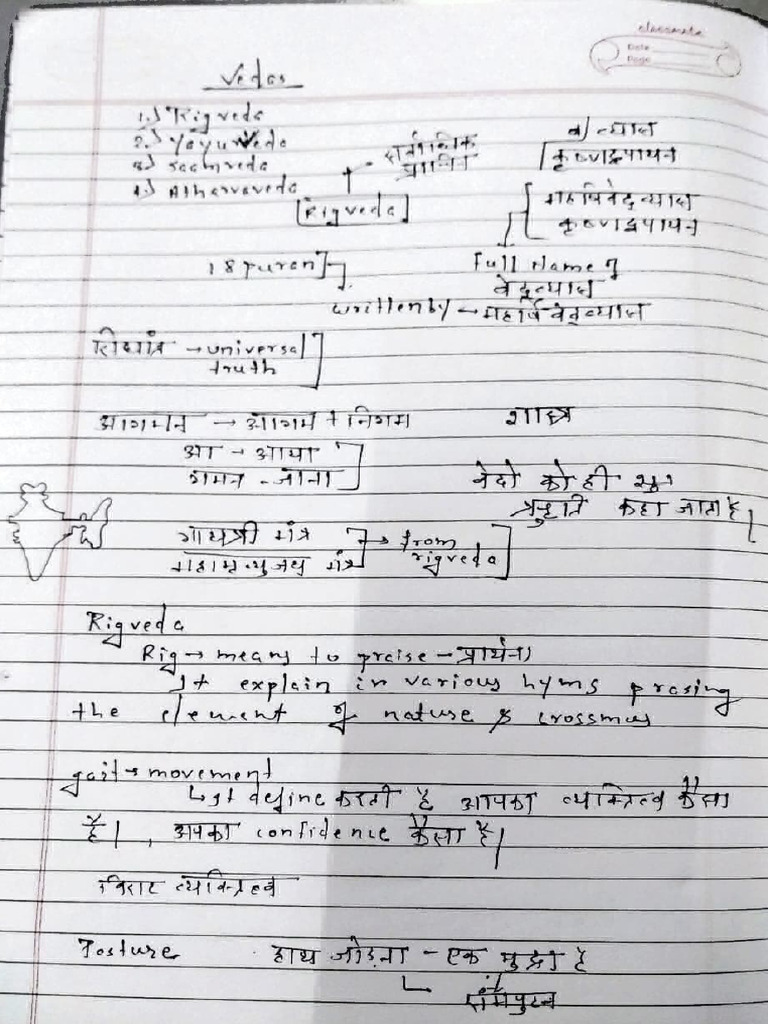 classmate
Date
Page
Vedas
1.) Rigveda
2.) Yajurveda
3) Saamveda
4.) Atharvaveda
[Rigveda]
व्यास
कृष्णद्वपायन
महर्षि वेदव्यास
कृष्णद्वपायन
18 Puran]
Full Name of
वेदव्यास
written by → महर्षि वेदव्यास
→ universal
truth
आगमन → आगम + निगम शास्त्र
आ - आया
गमन - जाना
वेदो को ही
कहा जाता है|
गायत्री मंत्र → from
महामृत्युजय मंत्र rigveda
Rigveda
Rig → means to praise - प्रार्थना
It explain in various hyms prasing
the element of nature &
gait → movement
↳ It define करती है आपका व्यक्तित्व कैसा
है|, अपका confidence कैसा है|
विराट व्यक्तित्व
Posture हाथ जोड़ना - एक मुद्रा है